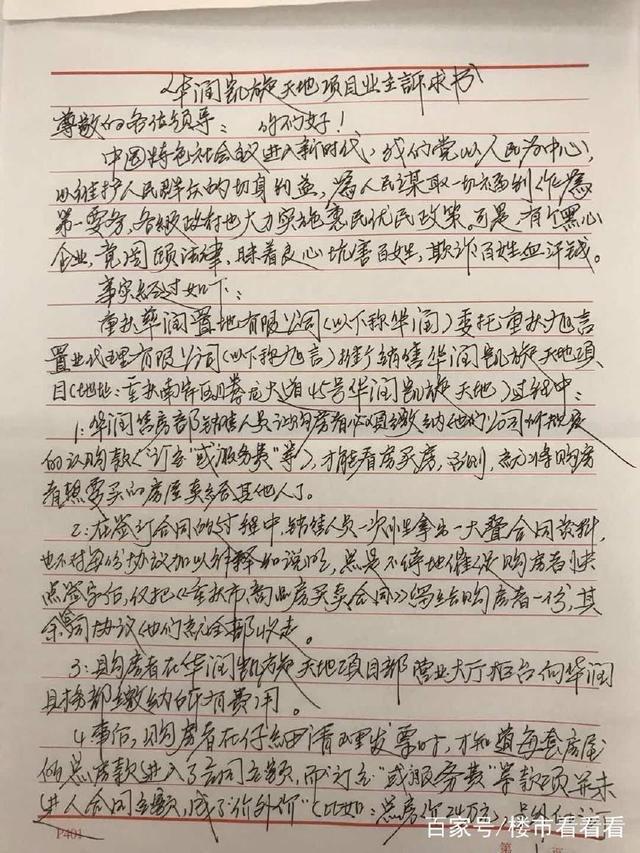 《华润凯旋天地项目业主诉求书》
尊敬的各位领导：你们好！
中国特色社会主义进入新时代，我们党以人民为中心，
以维护人民群众的切身利益，为人民谋取一切福利作为
第一要务，各级政府也大力实施惠民优民政策。可是，有个黑心
企业，竟罔顾法律，昧着良心坑害百姓，欺诈百姓血汗钱。
事实经过如下：
重庆华润置地有限公司（以下称华润）委托重庆旭言
置业代理有限公司（以下称旭言）销售华润凯旋天地项
目（地址：重庆南岸区大道45号华润凯旋天地）过程中：
1、华润售房部销售人员让购房者必须缴纳他们公司
的认购款（"订金"或"服务费"等），才能看房买房，否则，就将购房
者想要买的房屋卖给其他人了。
2、在签订合同的过程中，销售人员一次性拿出一大叠合同资料，
也不对每份协议加以解释和说明，总是不停地催促购房者快
点签字后，仅把《重庆市商品房买卖合同》给购房者一份，其
余合同协议他们就全部收走。
3、购房者在华润凯旋天地项目部营业大厅柜台向华润
缴纳所有费用。
4、事后，购房者在仔细清理发票时，才知道每套房屋
的总房款进入了合同金额，而"订金"或"服务费"等款项并未
进入合同金额，成了"价外价"（比如：总房价
P401
第1页
百家号/楼市看看看